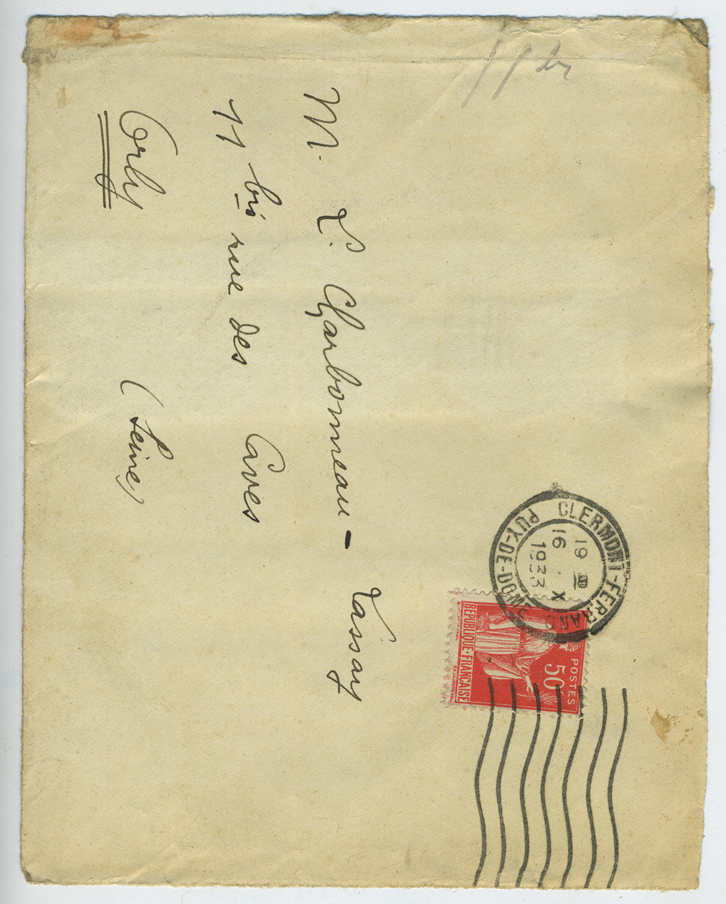 M. L. Charbonneau-Lassay
11 bis rue des Caves
Orly (Seine)
CLERMONT-FERRAND
PUY-DE-DOME
19 H
16 . X
1933
POSTES
50c
REPUBLIQUE · FRANÇAISE